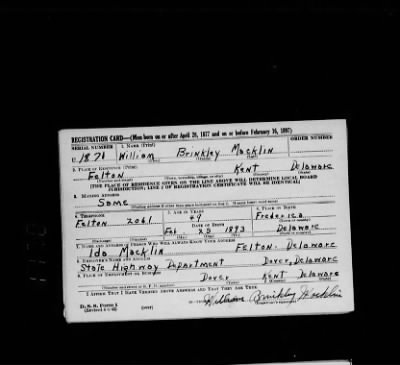 REGISTRATION CARD—(Men born on or after April 28, 1877 and on or before February 16, 1897)
SERIAL NUMBER 1. NAME (Print) ORDER NUMBER
U 1871 William Brinkley Macklin
2. PLACE OF RESIDENCE (Print)
Felton Kent Delaware
[THE PLACE OF RESIDENCE GIVEN ON THE LINE ABOVE WILL DETERMINE LOCAL BOARD
JURISDICTION; LINE 2 OF REGISTRATION CERTIFICATE WILL BE IDENTICAL]
3. MAILING ADDRESS
Same
4. TELEPHONE 5. AGE IN YEARS 6. PLACE OF BIRTH
Felton 2061 49 Frederica
DATE OF BIRTH
Feb 1893 Delaware
7. NAME AND ADDRESS OF PERSON WHO WILL ALWAYS KNOW YOUR ADDRESS
Ida Macklin Felton. Delaware
8. EMPLOYER'S NAME AND ADDRESS
State Highway Department Dover, Delaware
9. PLACE OF EMPLOYMENT OR BUSINESS
Dover Kent Delaware
I AFFIRM THAT I HAVE VERIFIED ABOVE ANSWERS AND THAT THEY ARE TRUE.
D. S. S. Form 1 William Brinkley Macklin